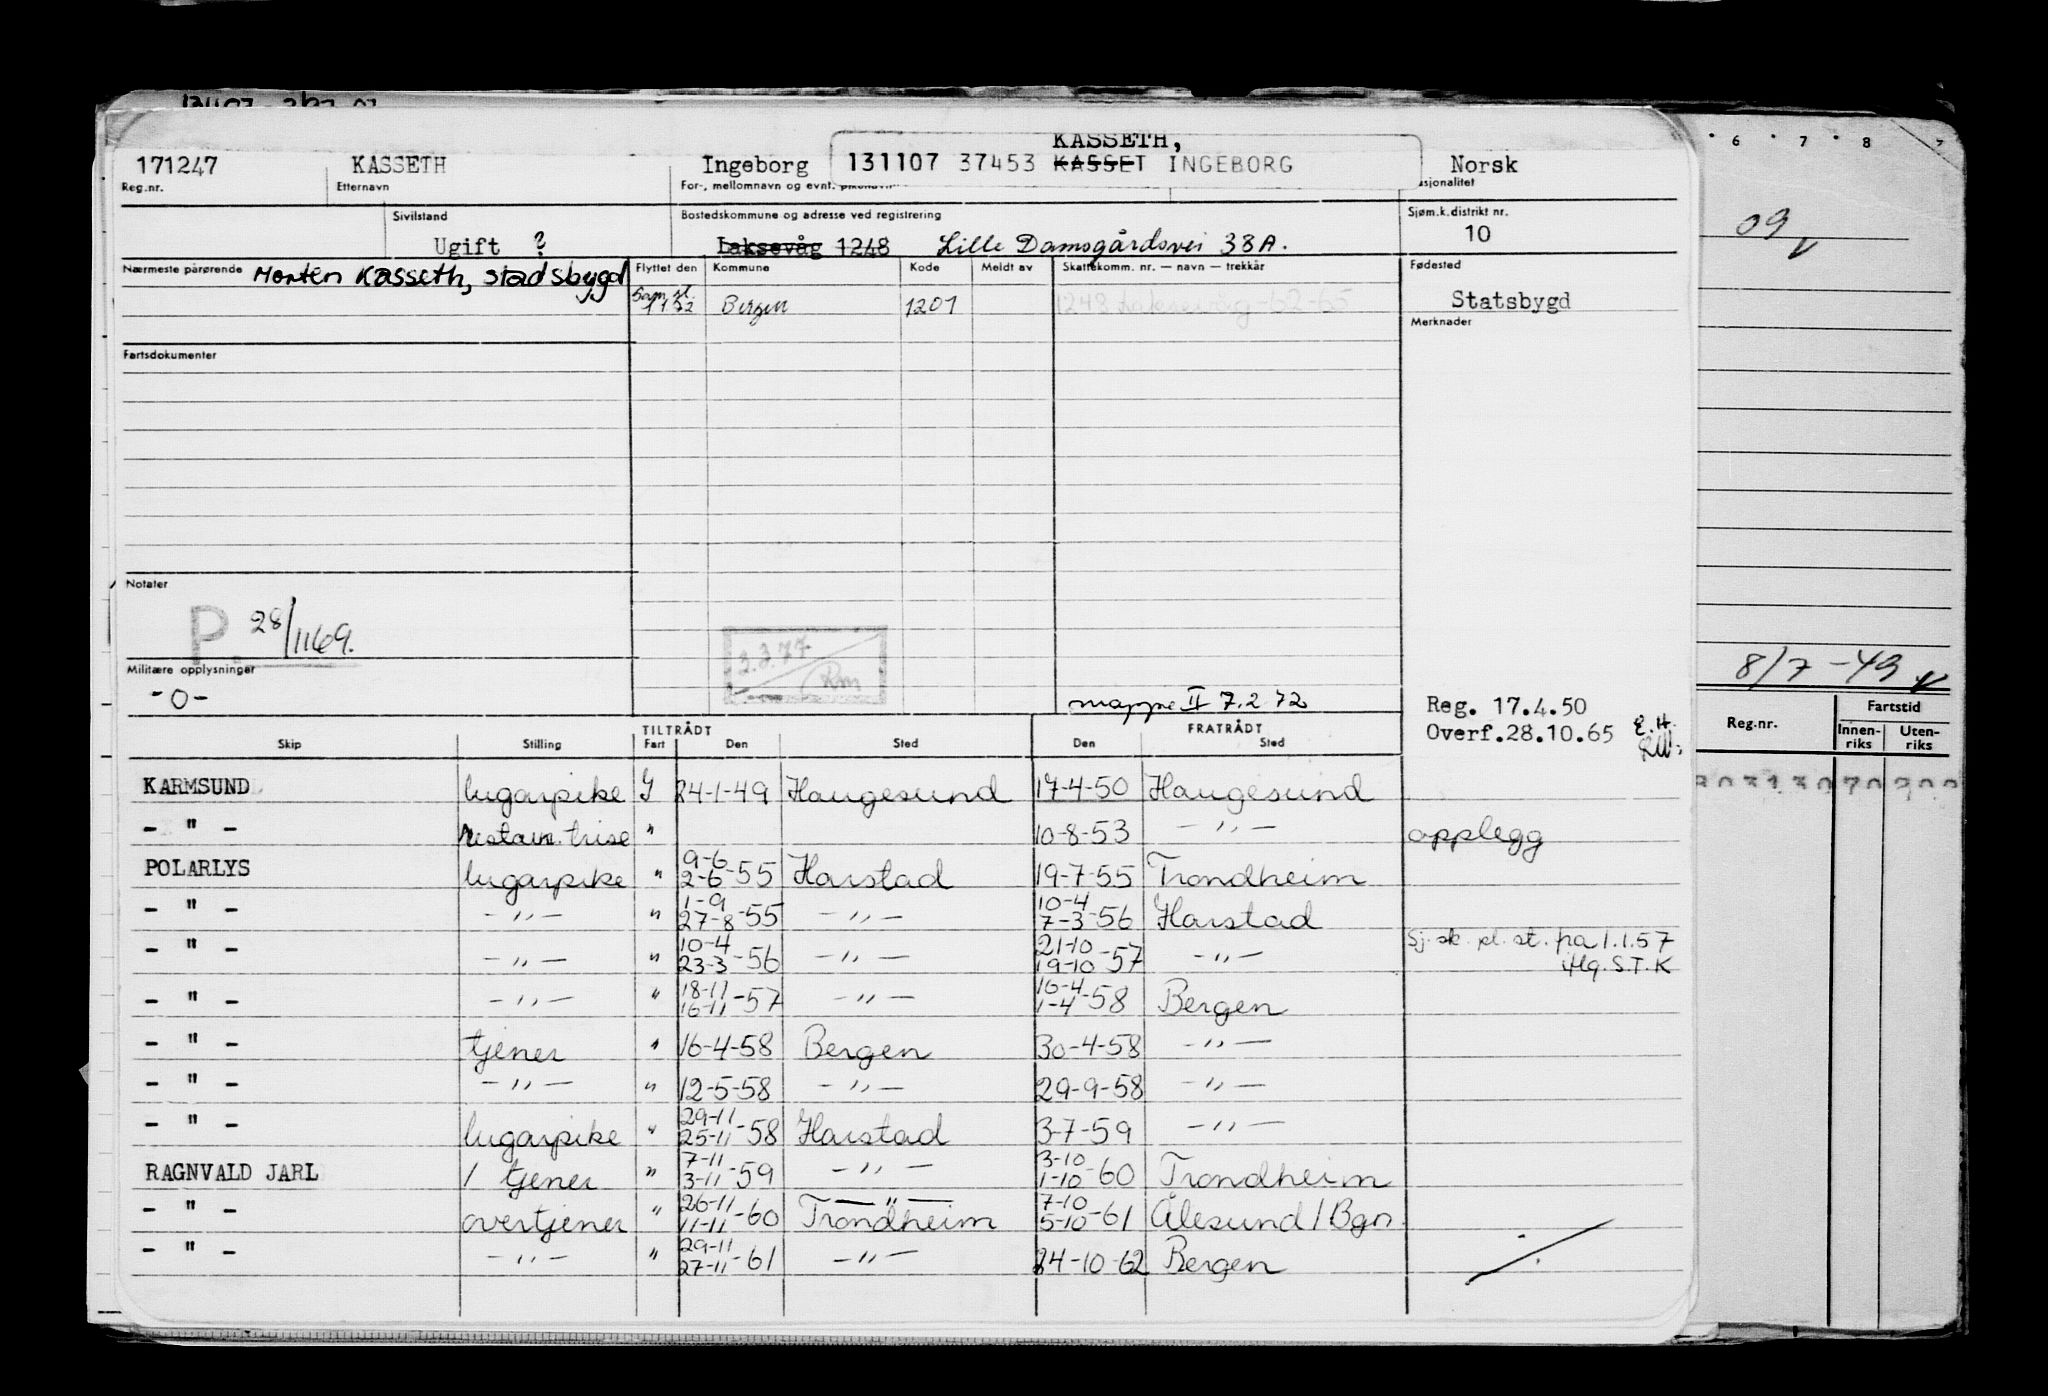 KASSETH,
171247 KASSETH Ingeborg 131107 37453 KASSET INGEBORG Norsk
Reg.nr. Etternavn For-, mellomnavn og evnt. pikenavn Nasjonalitet
Sivilstand Bostedskommune og adresse ved registrering Sjøm.k.distrikt nr.
Ugift ? Laksevåg 1248 Lille Damsgårdsvei 38A. 10
Nærmeste pårørende Morten Kasseth, Stadsbygd Flyttet den Kommune Kode Meldt av Skattekomm. nr. — navn — trekkår Fødested
Bergen 1201 1248 Laksevåg-62-65 Statsbygd
Merknader
Fartsdokumenter
Notater
P. 28/1169.
3.3.77
Rm
Militære opplysninger
-0-
mappe II 7.2 72
Reg. 17.4.50
Overf.28.10.65 E.H.
TILTRÅDT FRATRÅDT
Skip Stilling Fart Den Sted Den Sted
KARMSUND lugarpike 24-1-49 Haugesund 17-4-50 Haugesund
- " - restaur. trise " 10-8-53 - " - opplegg
POLARLYS lugarpike " 9-6 2-6-55 Harstad 19-7-55 Trondheim
- " - - " - " 1-9 27-8-55 - " - 10-4 7-3-56 Harstad
- " - - " - " 10-4 23-3-56 - " - 21-10 19-10-57 - " - Sj. sk. pl. st. fra 1.1.57
iflg. S.T.K
- " - - " - " 18-11 16-11-57 - " - 16-4 1-4-58 Bergen
- " - tjener " 16-4-58 Bergen 30-4-58 - " -
- " - - " - " 12-5-58 - " - 29-9-58 - " -
- " - lugarpike " 29-11 25-11-58 Harstad 3-7-59 - " -
RAGNVALD JARL / tjener " 7-11 3-11-59 - " - 3-10 1-10-60 Trondheim
- " - overtjener " 26-11 11-11-60 - " - Trondheim 7-10 5-10-61 Ålesund/Bgn.
- " - - " - " 29-11 27-11-61 - " - 24-10-62 Bergen
6 7 8
09
8/7-49
Reg.nr. Fartstid
Innen-riks Uten-riks